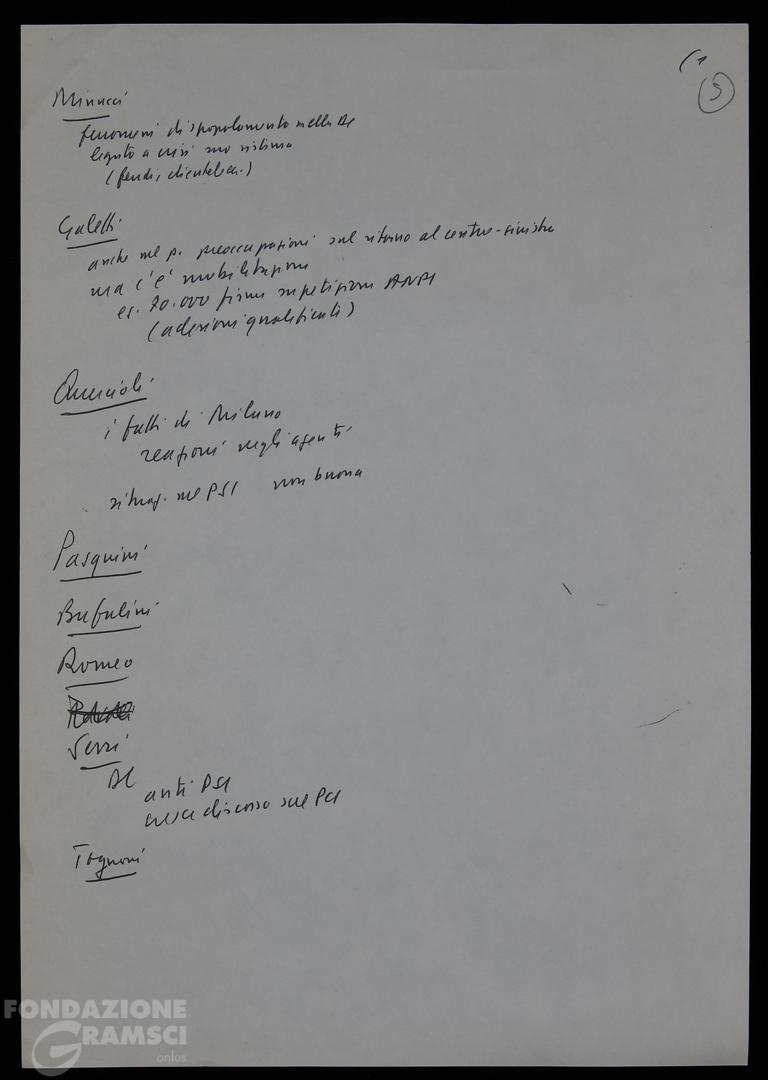 (1
5
Minucci
fenomeni di spopolamento nella DC
legato a crisi suo sistema
(feudi, clientele ecc.)
Galetti
anche nel p. preoccupazioni sul ritorno al centro-sinistra
ma c'è mobilitazione
es. 20.000 firme su petizione ANPI
(adesioni qualificati)
Quercioli
i fatti di Milano
reazioni negli agenti
situaz. nel PSI non buona
Pasquini
Bufalini
Romeo
Serri
DC
anti PSI
cresce discorso sul PCI
Tognoni
FONDAZIONE
GRAMSCI
onlus